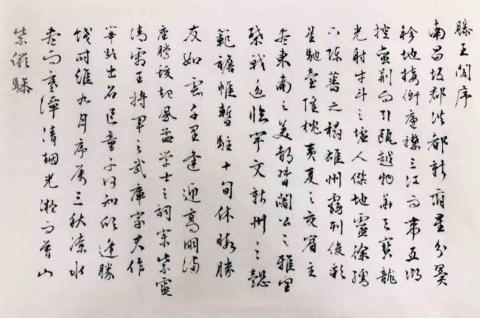 滕王阁序
南昌故郡洪都新府星分翼
轸地接衡廬襟三江而带五湖
控蛮荆而引瓯越物华天宝龍
光射牛斗之墟人傑地靈徐孺
下陈蕃之榻雄州霧列俊彩
星馳臺隍枕夷夏之交賓主
尽東南之美都督阎公之雅望
棨戟遥临宇文新州之懿
範襜帷暫駐十旬休暇勝
友如雲千里逢迎高朋满
座腾蛟起凤孟学士之词宗紫電
清霜王将军之武库家君作
宰路出名区童子何知躬逢勝
饯时维九月序属三秋潦水
尽而寒潭清烟光凝而暮山
紫俨骖